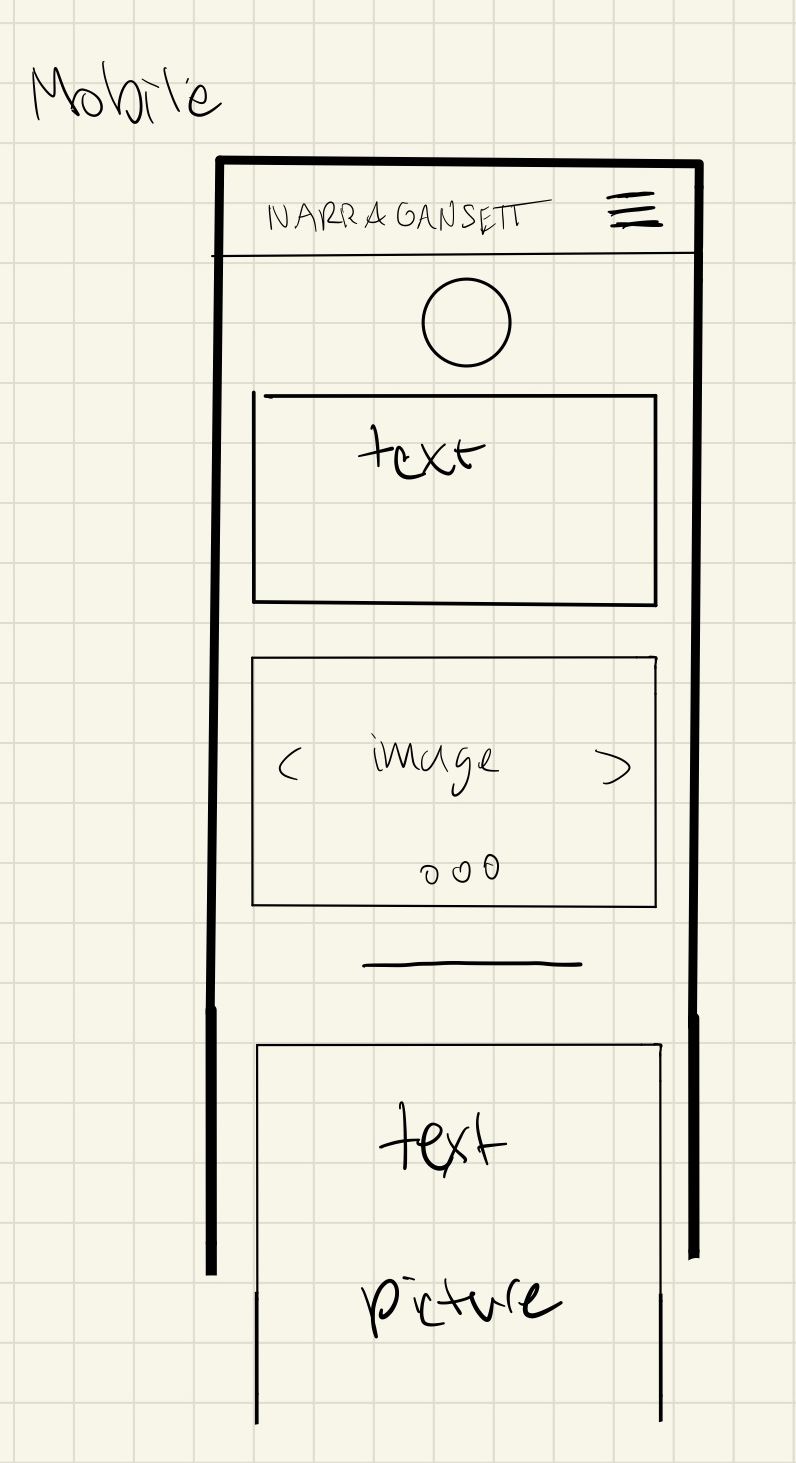 Mobile
NARRAGANSETT
text
< image >
text
picture